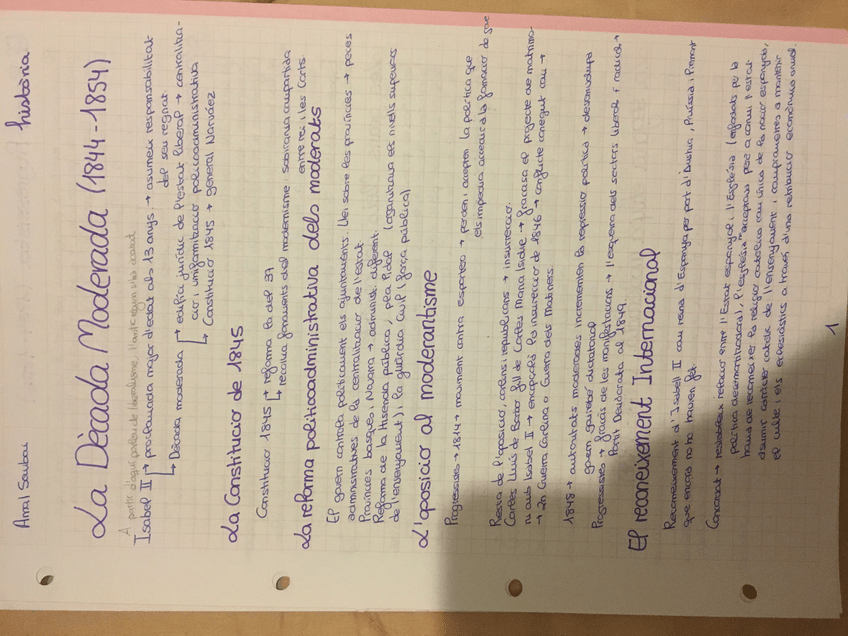 història
La Dècada Moderada (1844-1854)
A partir d'aquí parlem de liberalisme, l'antic règim s'ha acabat
Isabel II → proclamada major d'edat als 13 anys → assumeix responsabilitat
del seu regnat
↳ Dècada moderada → edifici jurídic de l'estat liberal → centralitza-
ció i uniformització politicoadministrativa
↳ Constitució 1845 → general Narváez
La Constitució de 1845
Constitució 1845 → reforma la del 37
↳ recull fonaments del moderisme sobirania compartida
entre rei i les Corts.
La reforma politicoadministrativa dels moderats
El govern controla políticament els ajuntaments. Llei sobre les províncies → peces
administratives de la centralització de l'estat
Províncies basques i Navarra → administ. diferent.
Reforma de la Hisenda pública, pla Pidal (organitzava els nivells superiors
de l'ensenyament) i la guàrdia civil (força pública)
L'oposició al moderantisme
Progressistes → 1844 → moviment contra Espartero → perden i accepten la política que
els impedia accedir a la formació de gov
Resta de l'oposició, carlins i republicans → insurrecció.
Carles Lluís de Borbó fill de Carles Maria Isidre → fracassa el projecte de matrimo-
ni amb Isabel II → encapçala la insurrecció de 1846 → conflicte conegut com →
→ 2a Guerra Carlina o Guerra dels Matiners.
1848 → autoritats moderades incrementen la repressió política → desenvolupa
govern gairebé dictatorial
Progressistes → fracàs de les manifestacions → l'esquerra dels sectors liberal i radical →
Partit Demòcrata al 1849
El reconeixement Internacional
Reconeixement d'Isabel II com reina d'Espanya per part d'Àustria, Prússia i Piemont
que encara no ho havien fet
Concordat → restableix relació entre l'Estat espanyol i l'Església (enfadats per la
política desamortitzadora), l'església acceptava però a canvi l'estat
havia de reconèixer la religió catòlica com única de la nació espanyola,
assumir caràcter catòlic de l'ensenyament i comprometre's a mantenir
el culte i els eclesiàstics a través d'una retribució econòmica anual.
1